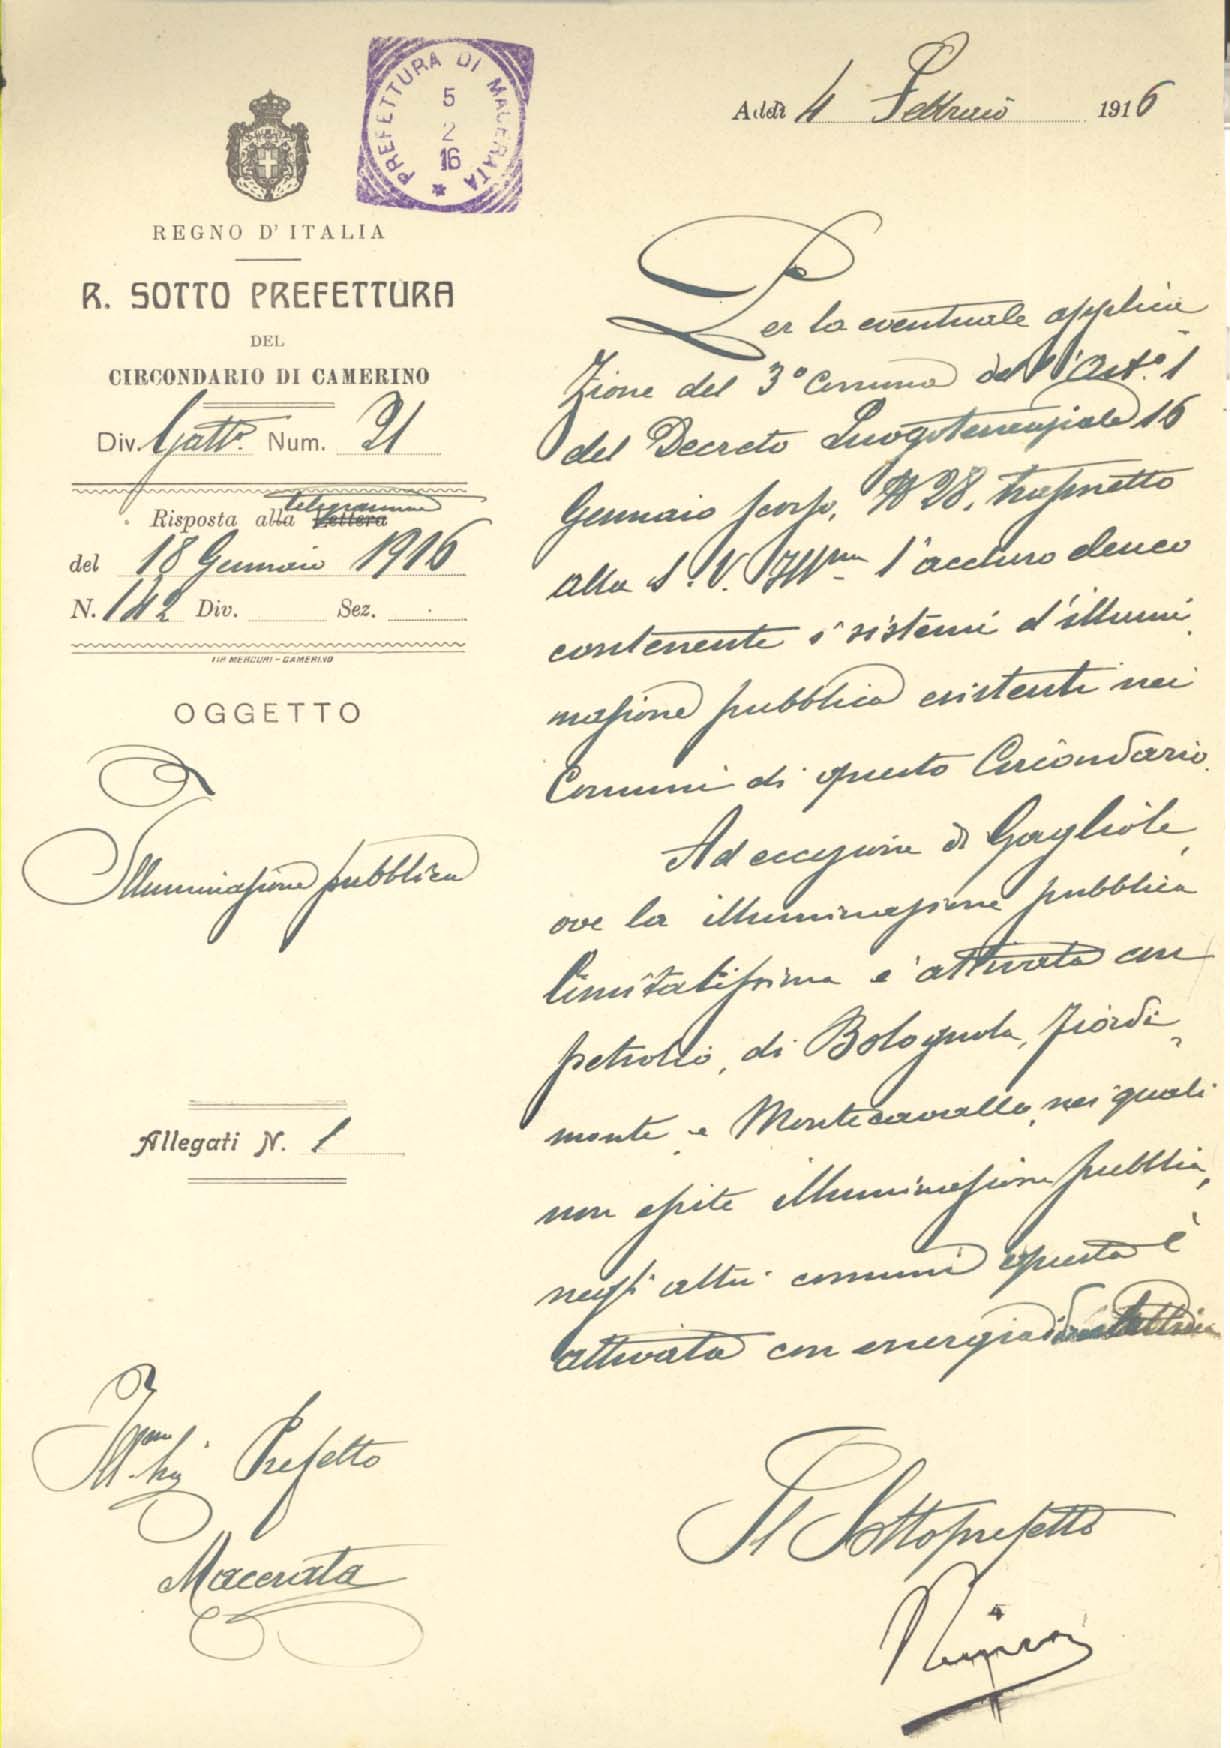 PREFETTURA DI MACERATA
5
2
16
Addì 4 Febbraio 1916
REGNO D'ITALIA
R. SOTTO PREFETTURA
DEL
CIRCONDARIO DI CAMERINO
Div. Gabtto. Num. 21
Risposta alla Lettera telegramma
del 18 Gennaio 1916
N. 142 Div. Sez.
TIP. MERCURI - CAMERINO
OGGETTO
Illuminazione pubblica
Allegati N. 1
Ill.mo Sig. Prefetto
Macerata
Per la eventuale applica
zione del 3° comma dell'Art.° 1
del Decreto Luogotenenziale 16
Gennaio scorso, N 28, trasmetto
alla S. V. Ill.ma l'accluso elenco
contenente i sistemi d'illumi
nazione pubblica esistenti nei
Comuni di questo Circondario.
Ad eccezione di Gagliole,
ove la illuminazione pubblica
limitatissima è attivata con
petrolio, di Bolognola, Fiordi=
monte, e Montecavallo, nei quali
non esiste illuminazione pubblica,
negli altri comuni questa è
attivata con energia elettrica
Il Sottoprefetto